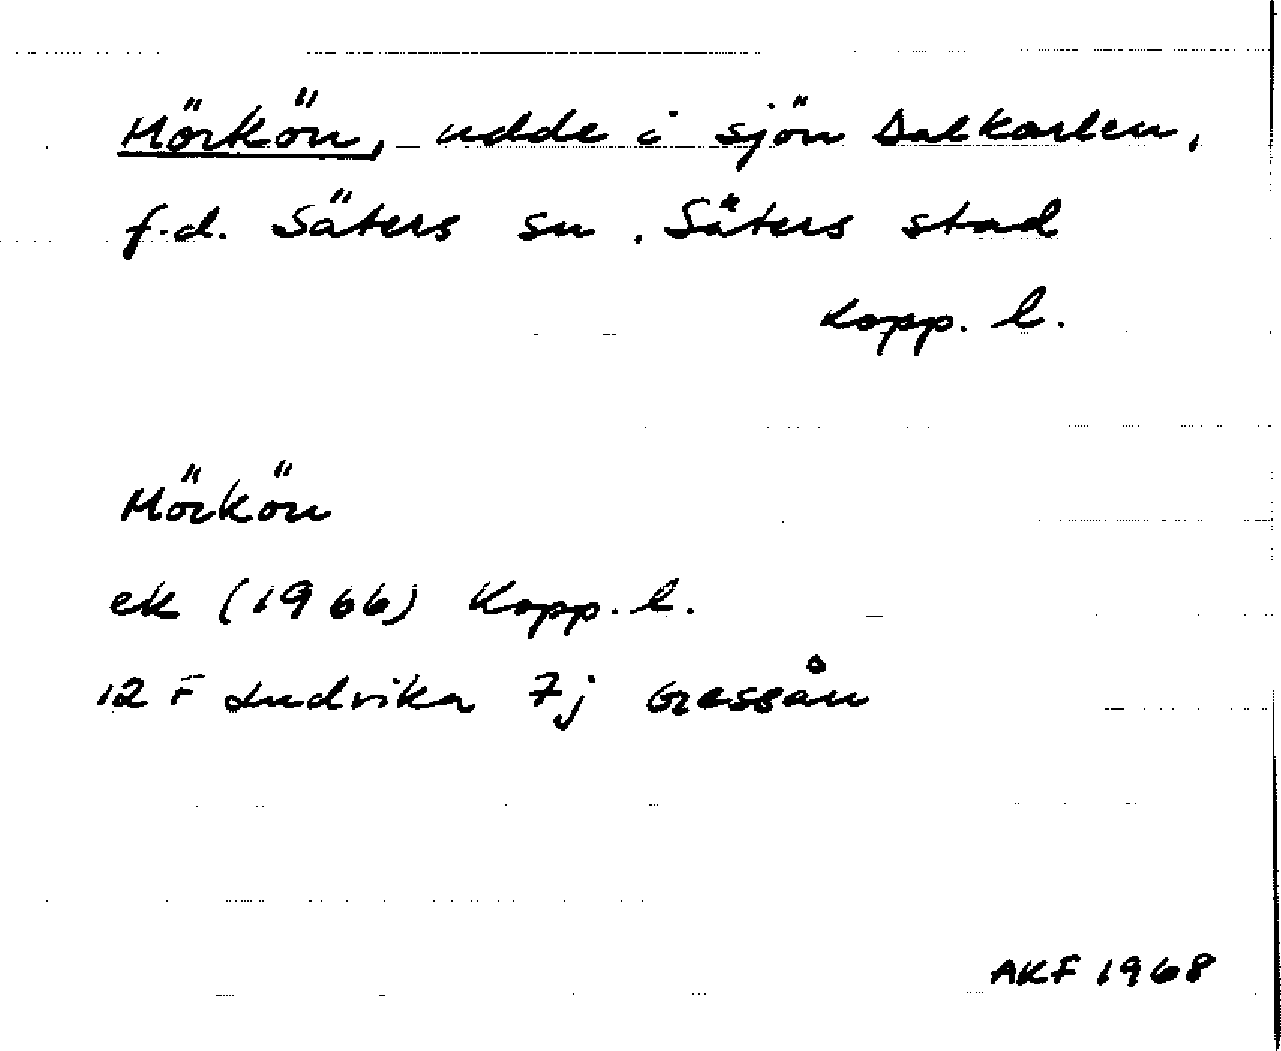 Mörkön, udde i sjön Dalkarlen,
f.d. Säters sn, Säters stad
Kopp. l.
Mörkön
ek (1966) Kopp. l.
12 F Ludvika 7j Grassån
AKF 1968